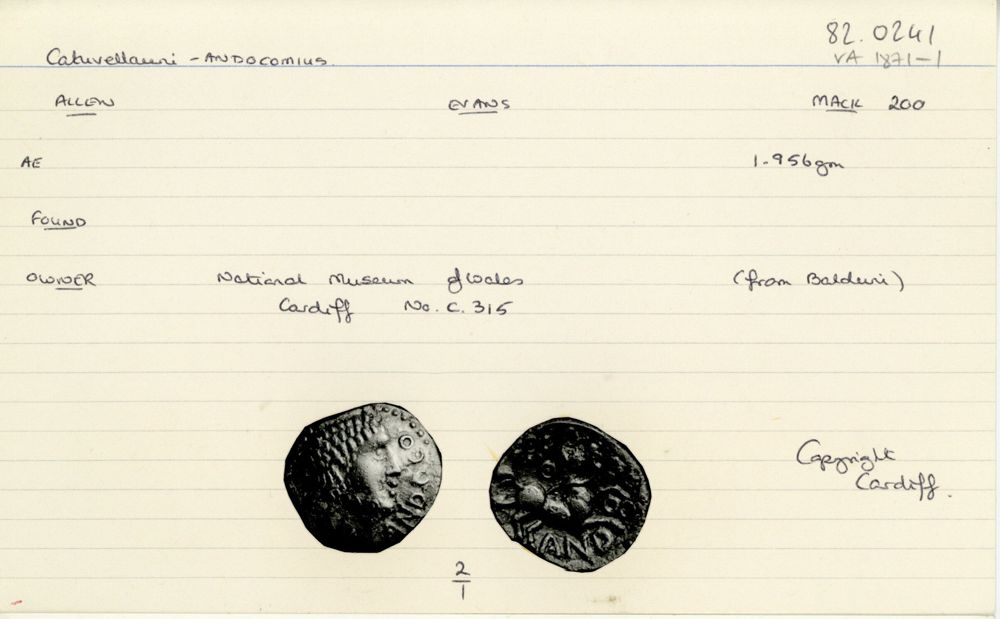 82.0241
Catuvellauni - ANDOCOMIUS.
VA 1871-1
ALLEN EVANS MACK 200
AE 1.956gm
FOUND
OWNER National Museum of Wales (from Baldwin)
Cardiff No. C. 315
ANDOCO
ANDOCO
Copyright
Cardiff.
2
1